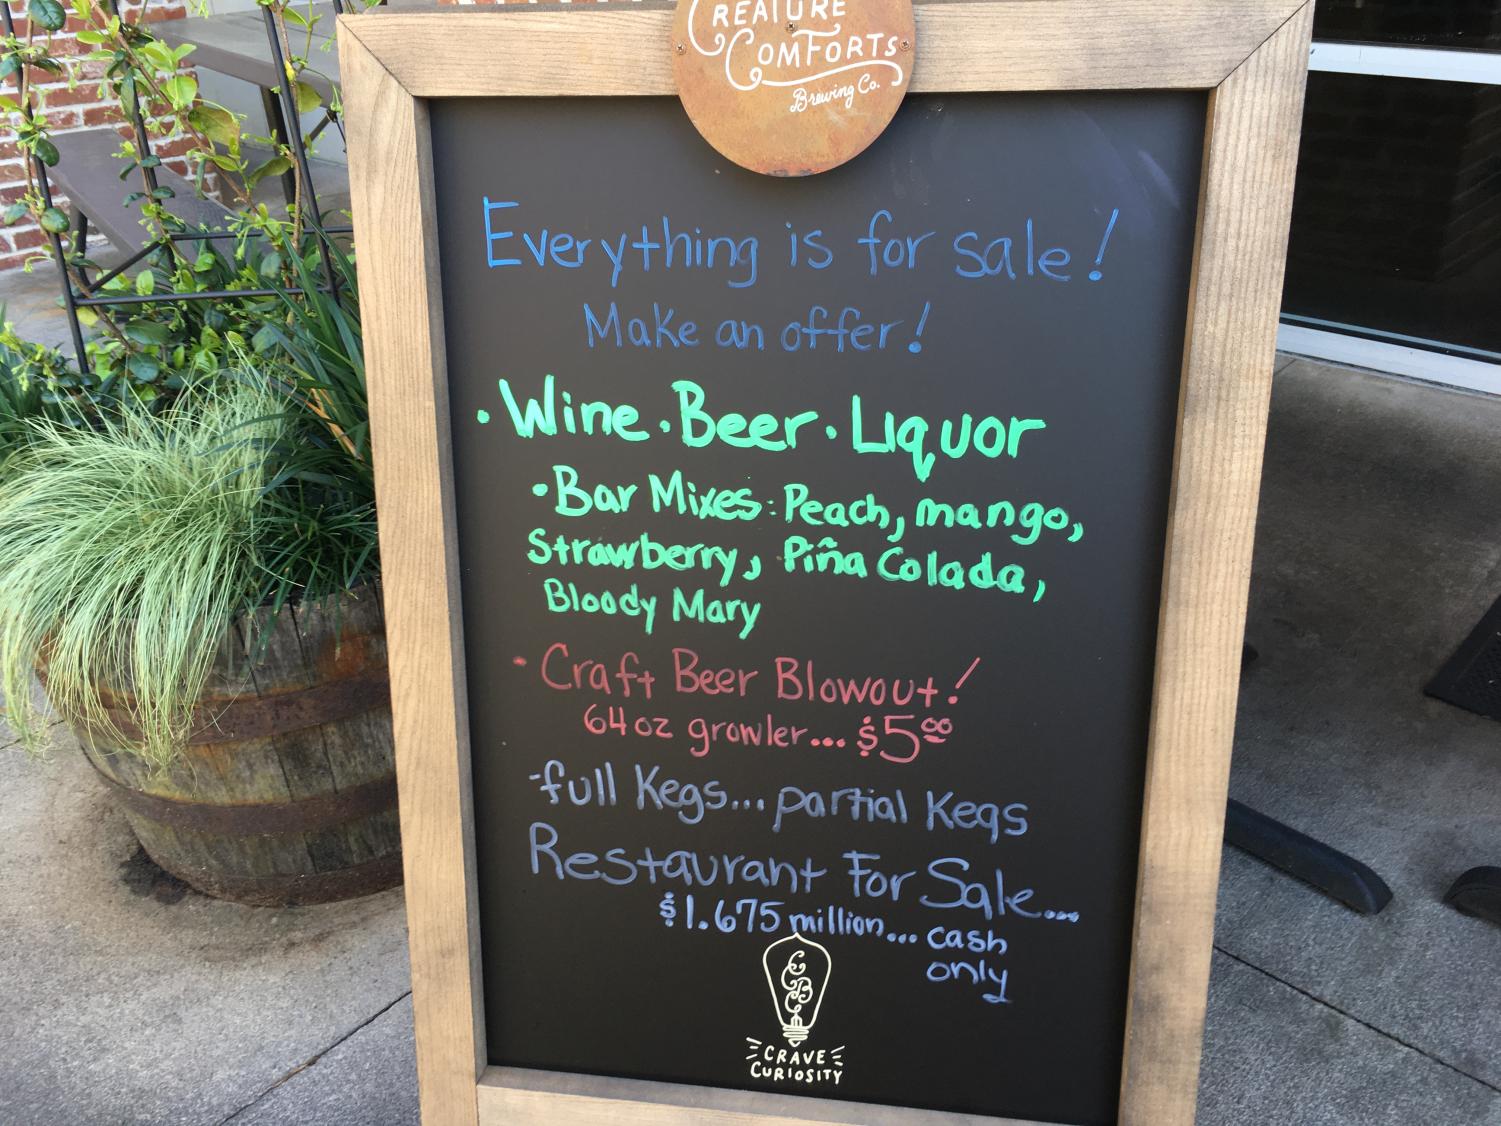 CREATURE
COMFORTS
Brewing Co.
Everything is for sale!
Make an offer!
• Wine • Beer • Liquor
• Bar Mixes: Peach, mango,
Strawberry, Piña Colada,
Bloody Mary
• Craft Beer Blowout!
64oz growler... $5.00
-full Kegs... partial Kegs
Restaurant For Sale...
$1.675 million... cash
only
CCBC
CRAVE
CURIOSITY